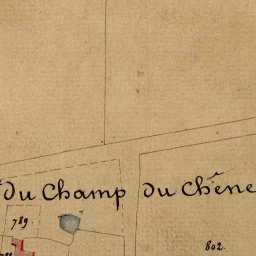 du Champ du Chêne
789.
802.